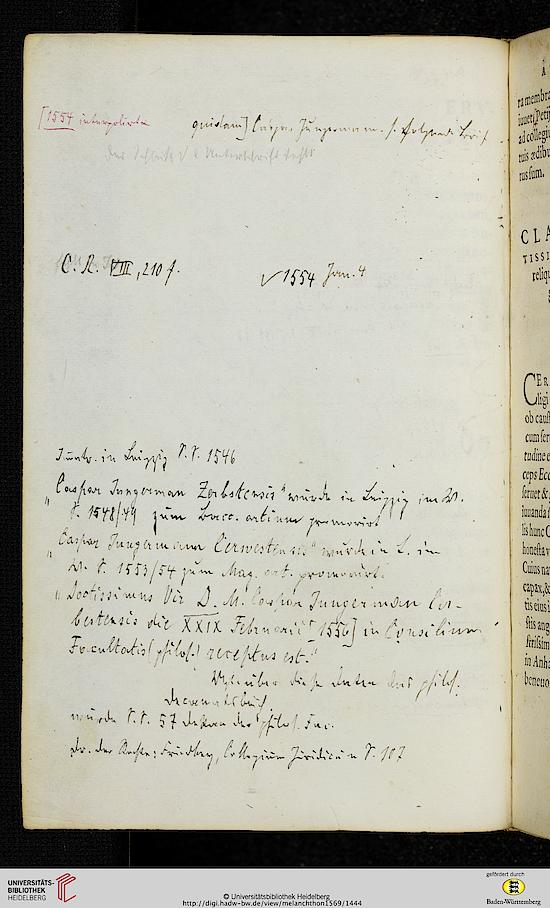 [1554 interpolirt
quidam] Caspar Jungermann. s. folgenden Brief
Der Schluß d Unterschrift fehlt
C. R. VIII, 210 f.
✓ 1554 Jan. 4
Immtr. in Leipzig S. S. 1546
„Caspar Jungerman Zerbstensis“ wurde in Leipzig im W.
S. 1548/49 zum Bacc. artium promovirt
„Caspar Jungermann Cervestensis“ wurde in L. im
W. S. 1553/54 zum Mag. art. promovirt.
„Doctissimus Vir D. M. Caspar Jungerman Cer-
bestensis die XXIX Februarii [1556] in Consilium
Facultatis (philos.) receptus est.“
über diese Daten das philos.
Decanatsbuch
wurde S. S. 57 Dekan der philos. Fac.
dr. der Rechte: Friedberg, Collegium Juridicum S. 107
A
ra membra
iunct
Petij
ad collegi
tuis ædibu
rus sum.
CLA
TISSI
reliq
CER
ligi
ob causs
cum fer
tudine e
ceps Ecc
iuuanda
lis hunc C
honesta v
Cuius na
capax, &
tis eius i
stis ang
in Anha
UNIVERSITÄTS-
BIBLIOTHEK
HEIDELBERG
© Universitätsbibliothek Heidelberg
http://digi.hadw-bw.de/view/melanchthon1569/1444
gefördert durch
Baden-Württemberg